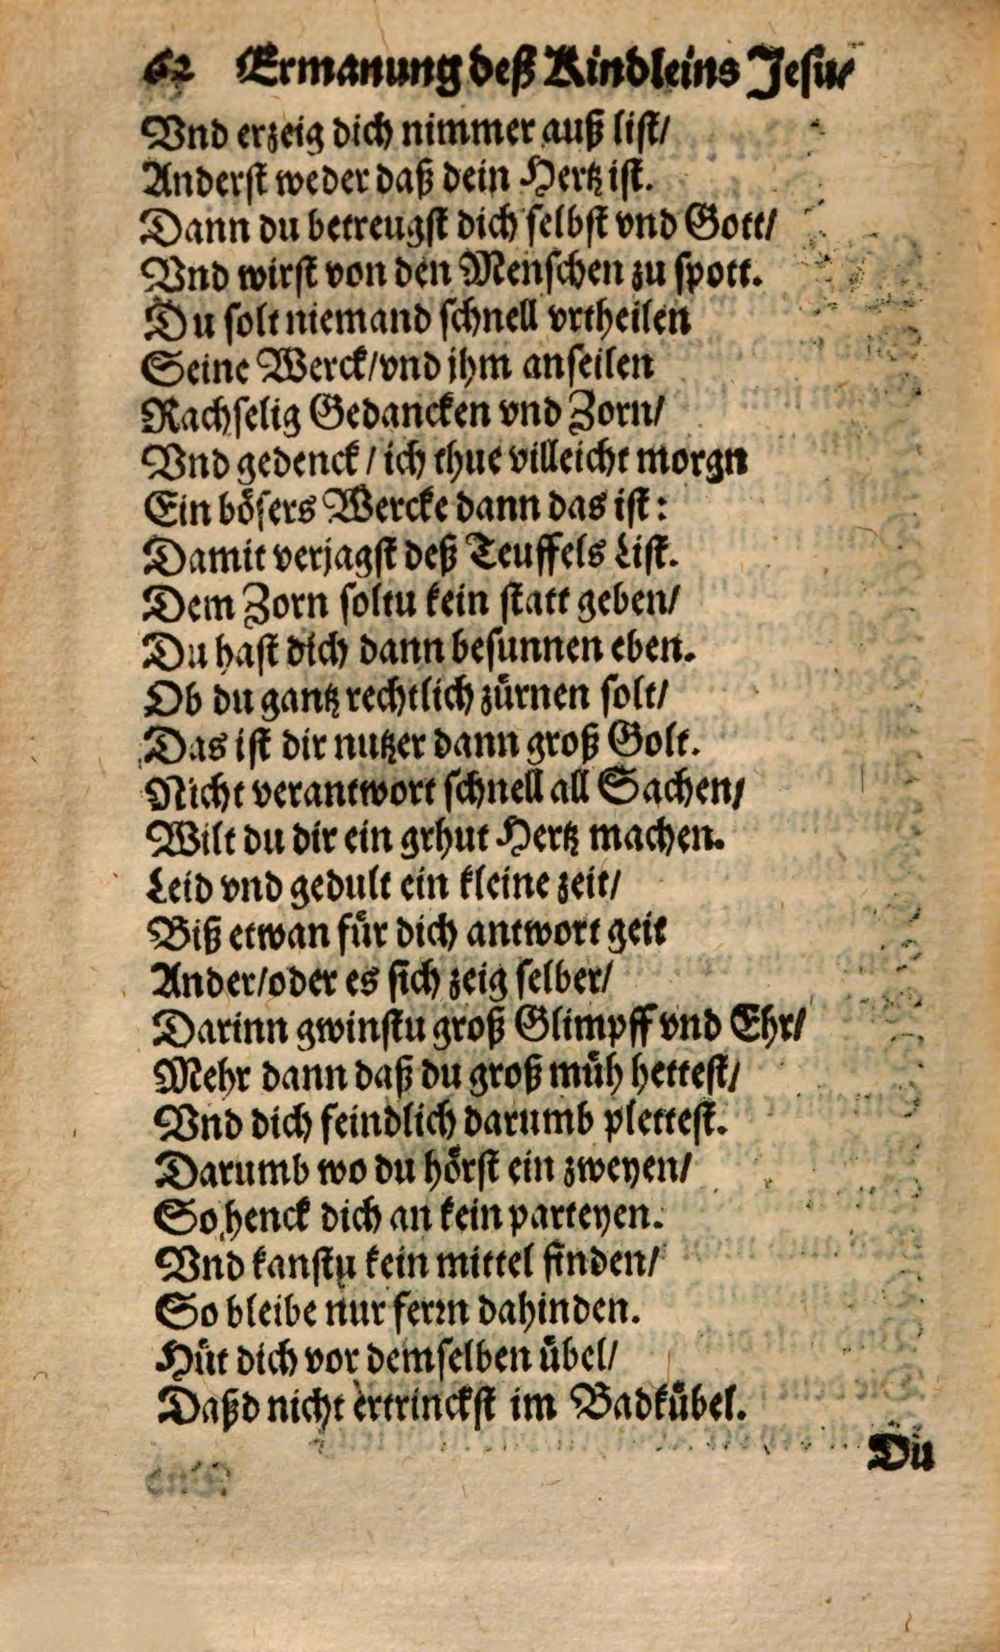 62 Ermanung deß Kindleins Jesu/
Vnd erzeig dich nimmer auß list/
Anderst weder daß dein Hertz ist.
Dann du betreugst dich selbst vnd Gott/
Vnd wirst von den Menschen zu spott.
Du solt niemand schnell vrtheilen
Seine Werck/vnd ihm anseilen
Rachselig Gedancken vnd Zorn/
Vnd gedenck / ich thue villeicht morgn
Ein bösers Wercke dann das ist:
Damit verjagst deß Teuffels List.
Dem Zorn soltu kein statt geben/
Du hast dich dann besunnen eben.
Ob du gantz rechtlich zürnen solt/
Das ist dir nutzer dann groß Golt.
Nicht verantwort schnell all Sachen/
Wilt du dir ein grhut Hertz machen.
Leid vnd gedult ein kleine zeit/
Biß etwan für dich antwort geit
Ander/oder es sich zeig selber/
Darinn gwinstu groß Glimpff vnd Ehr/
Mehr dann daß du groß müh hettest/
Vnd dich feindlich darumb plettest.
Darumb wo du hörst ein zweyen/
So henck dich an kein parteyen.
Vnd kanstu kein mittel finden/
So bleibe nur ferrn dahinden.
Hüt dich vor demselben übel/
Daßd nicht ertrinckst im Badkübel.
Du